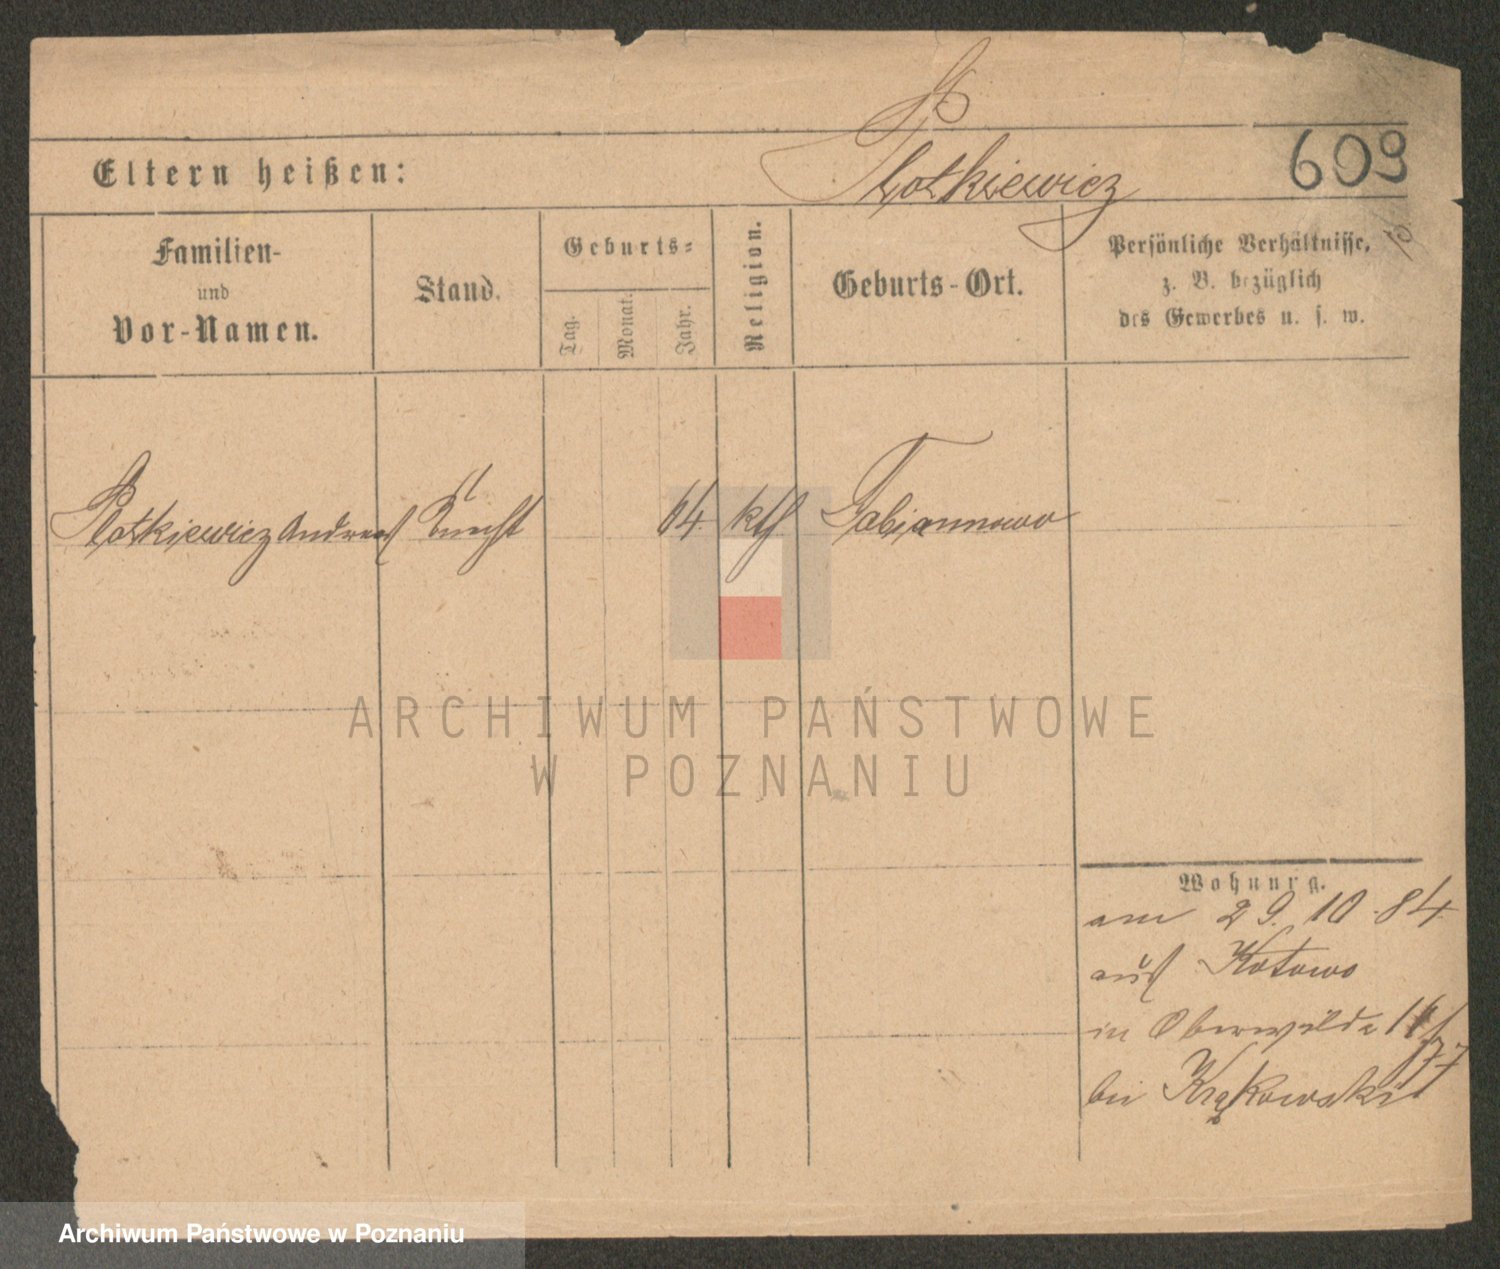 Plotkiewicz
609
Eltern heißen:
Familien-
und
Vor-Namen.
Stand.
Geburts-
Tag.
Monat.
Jahr.
Religion.
Geburts-Ort.
Persönliche Verhältnisse,
z. B. bezüglich
des Gewerbes u. s. w.
Plotkiewicz Andreas Knecht 64 kth Fabianowo
ARCHIWUM PAŃSTWOWE
W POZNANIU
Wohnung.
am 29. 10. 84
aus Kotowo
in Oberwilda
bei Krąkowski
Archiwum Państwowe w Poznaniu